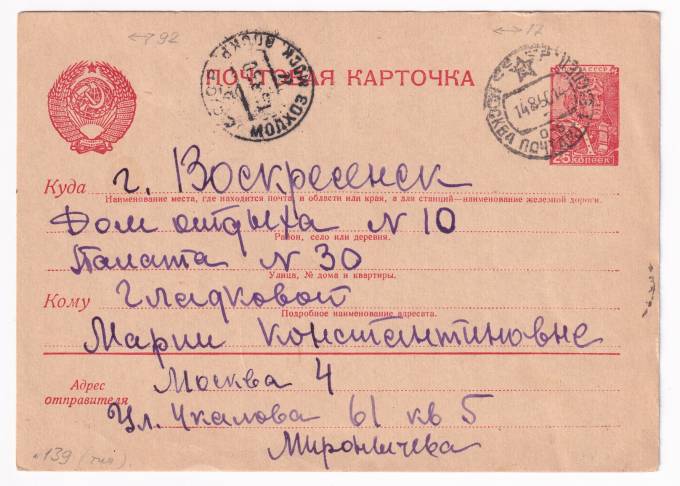 92
17
ПОЧТОВАЯ КАРТОЧКА
СССР
МОЛХОЗ
МОСК. ВОСКР.
МОСКВА ПОЧТАМТ
14.8.50
25 КОПЕЕК
Куда г. Воскресенск
Наименование места, где находится почта, и области или края, а для станций—наименование железной дороги.
Дом отдыха N 10
Район, село или деревня.
Палата N 30
Улица, № дома и квартиры.
Кому Гладковой
Подробное наименование адресата.
Марии Константиновне
Адрес отправителя
Москва 4
Ул. Чкалова 61 кв 5
Миронычева
139 (тип)